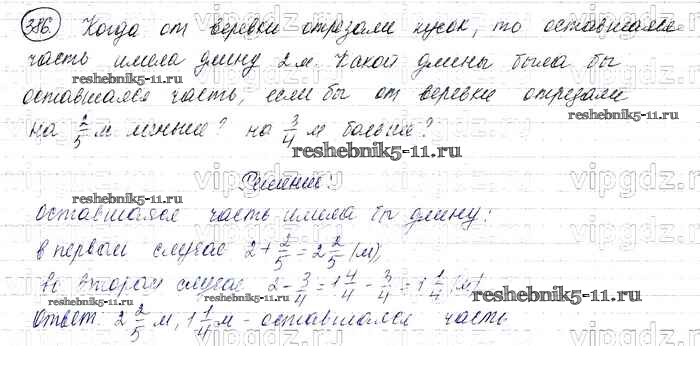 386. Когда от веревки отрезали кусок, то оставшаяся
часть имела длину 2 м. Какой длины была бы
reshebnik5-11.ru
оставшаяся часть, если бы от веревки отрезали
на 2/5 м меньше? на 3/4 м больше?
reshebnik5-11.ru
vipgdz.ru
Решение:
reshebnik5-11.ru
оставшаяся часть имела бы длину:
в первом случае 2 + 2/5 = 2 2/5 (м),
во втором случае 2 - 3/4 = 1 4/4 - 3/4 = 1 1/4 (м)
reshebnik5-11.ru
Ответ: 2 2/5 м, 1 1/4 м - оставшаяся часть